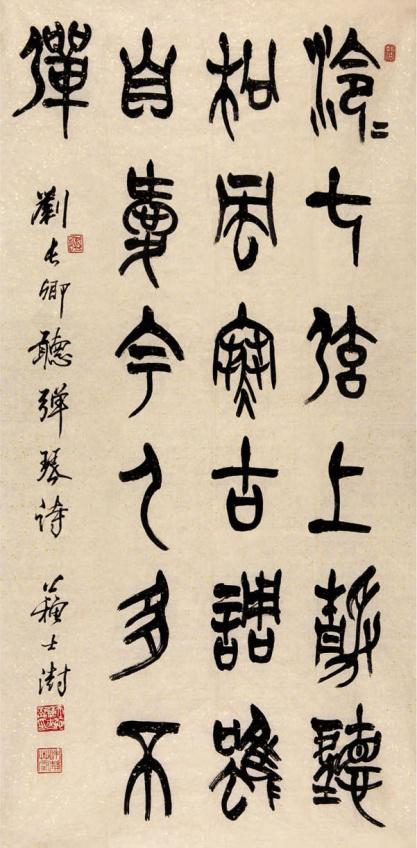 泠〻七弦上靜聽
松風寒古調雖
自愛今人多不
彈
劉长卿聽弹琴诗 蘇士澍